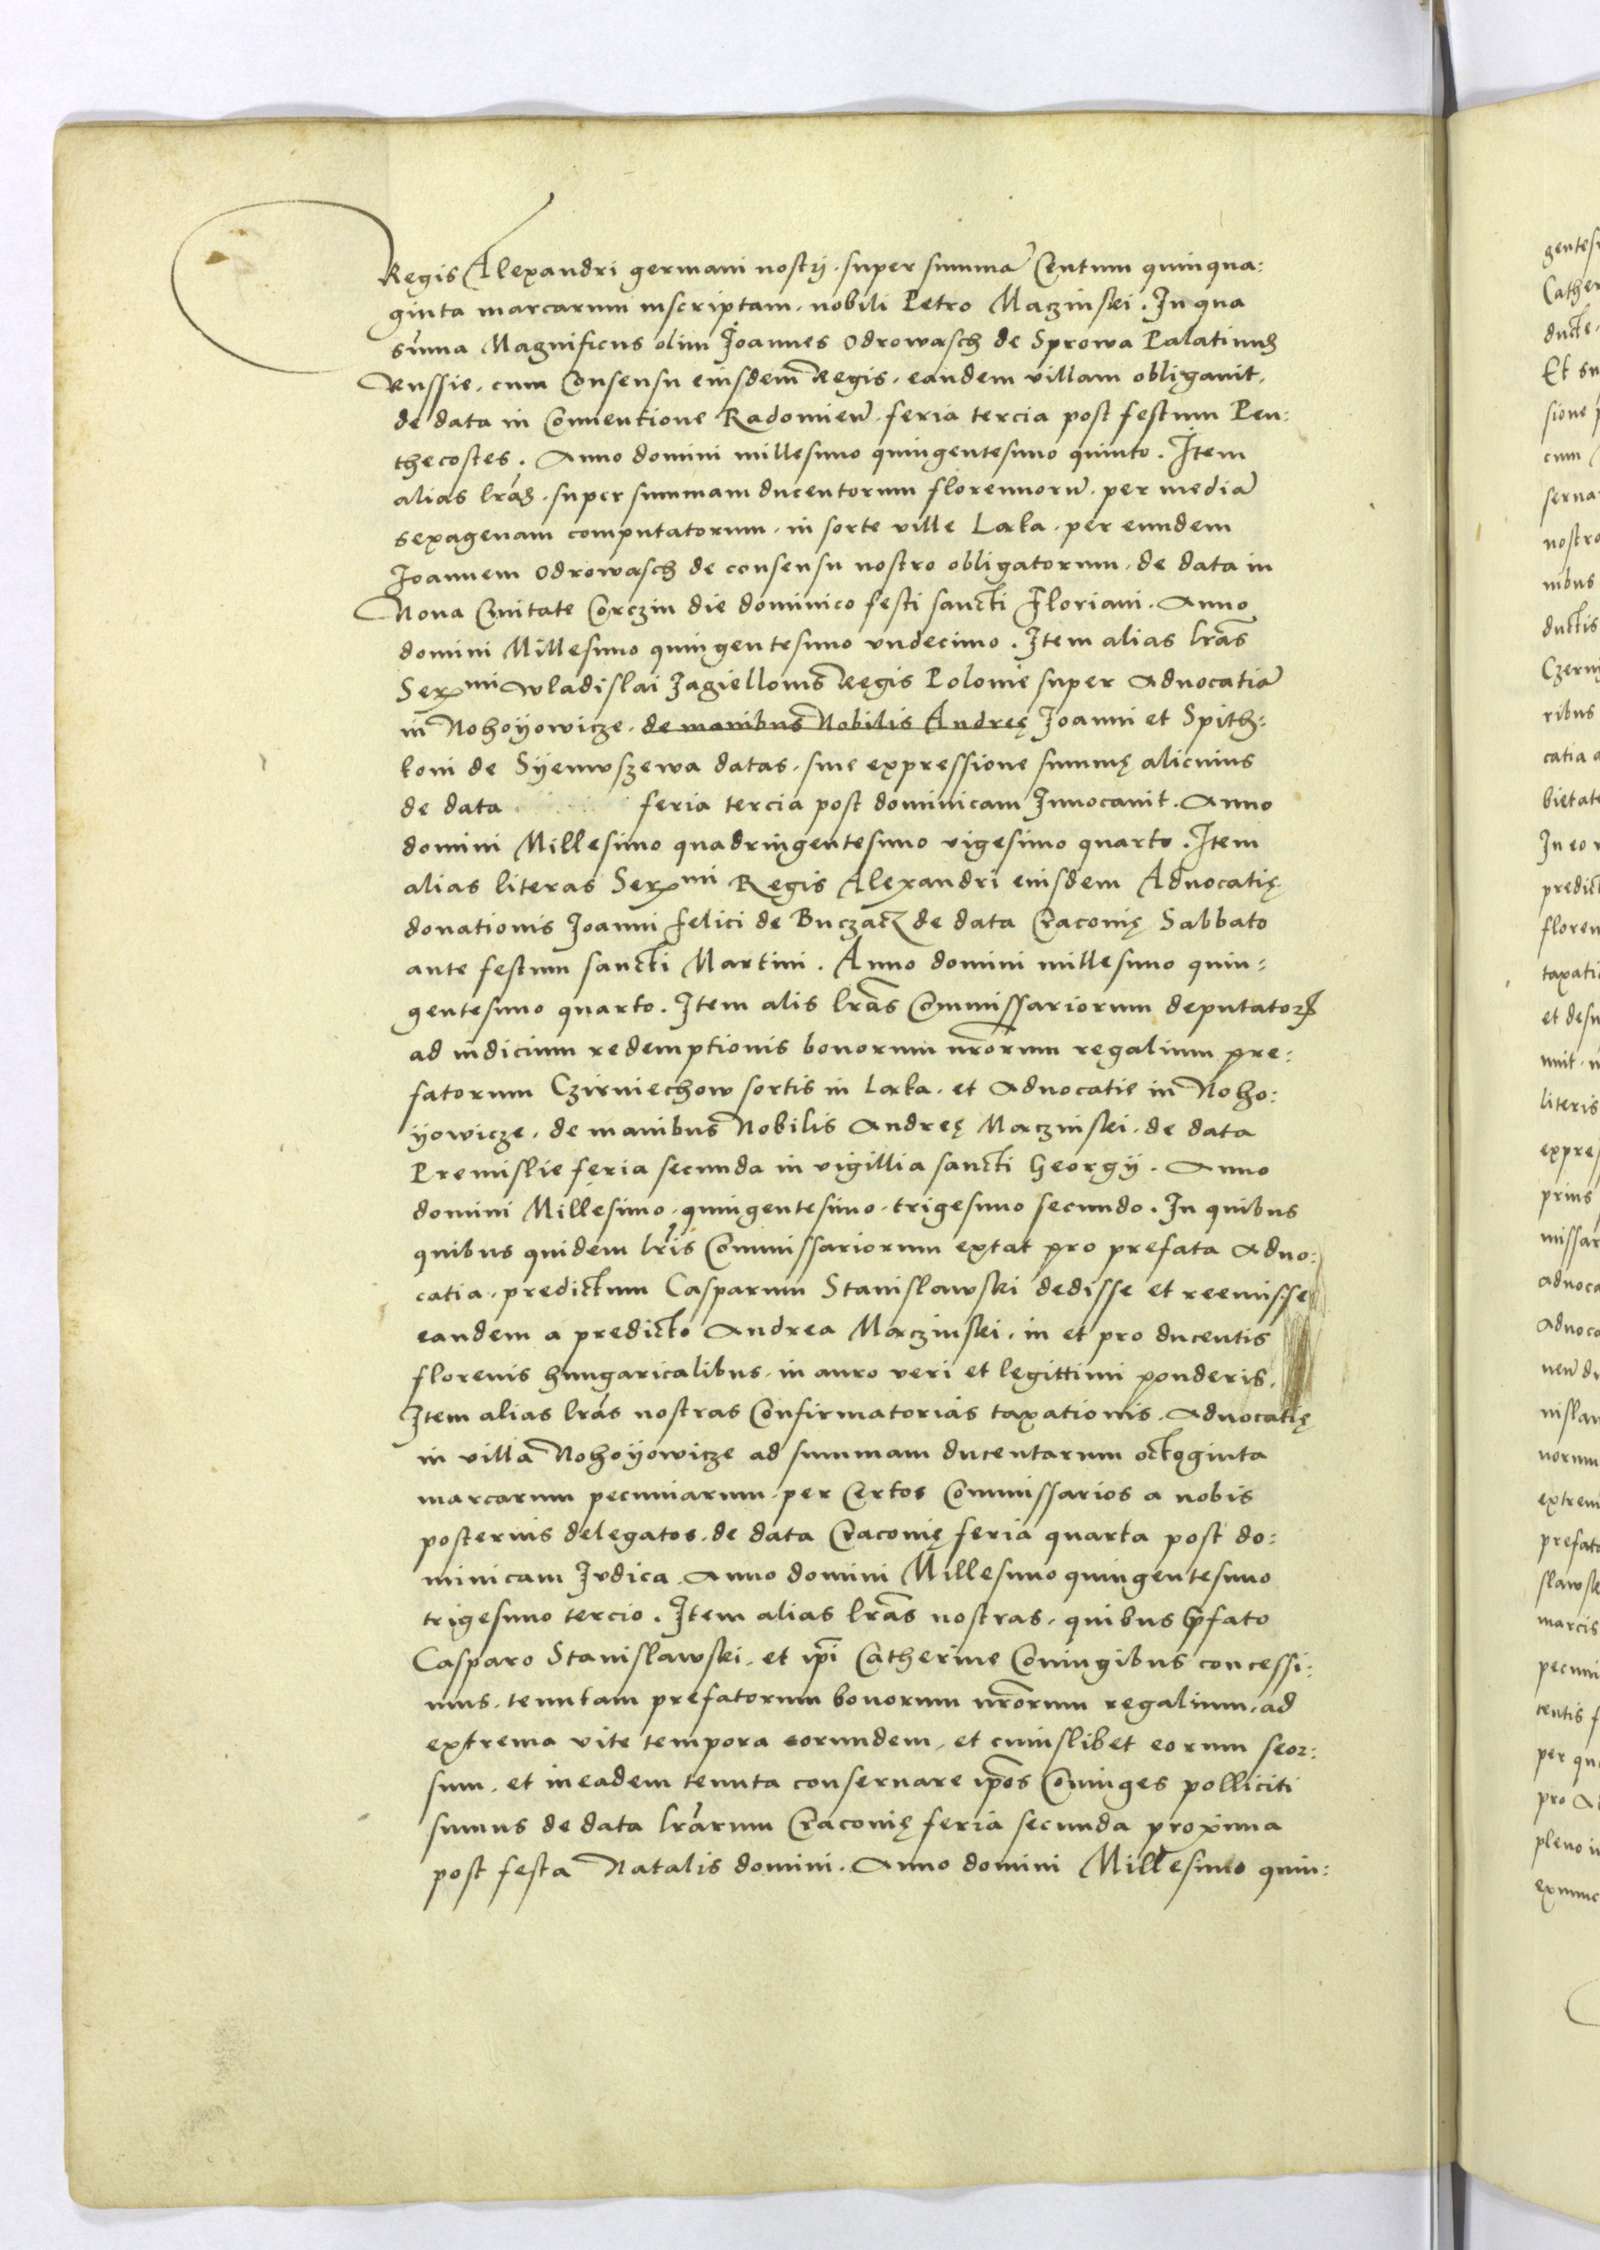 Regis Alexandri germani nostrj. super summā Centum quinqua:
ginta marcarum inscriptam. nobili Petro Maczinski. In qua
suma Magnificus olim Joannes Odrowasch de Sprowa Palatinus
Russie. cum Consensu eiusdem Regis. eandem villam obligavit.
de data in Conventione Radomien̄. feria tercia post festum Pen:
thecostes. Anno domini millesimo quingentesimo quinto. Item
alias lrās. super summam ducentorum florenorū. per mediā
sexagenam computatorum. in sorte ville Laka. per eundem
Joannem Odrowasch de consensu nostro obligatorum. de data in
Nova Civitate Corczin die dominico festi sancti Floriani. Anno
domini Millesimo quingentesimo undecimo. Item alias lrās
Serᵐⁱ Wladislai Jagiellonis Regis Polonie super Advocatiā
in Nohoÿowicze. de manibus Nobilis Andreę Joanni et Spith:
koni de Sÿenwszewa datas. sine expressione summę alicuius
de data feria tercia post dominicam Invocavit. Anno
domini Millesimo quadringentesimo vigesimo quarto. Item
alias literas Serᵐⁱ Regis Alexandri eiusdem Advocatię
donationis Joanni felici de Buczacz de data Cracovię Sabbato
ante festum sancti Martini. Anno domini millesimo quin:
gentesimo quarto. Item alis lrās Commissariorum deputatorꝝ
ad iudicium redemptionis bonorum nr̄orum regalium pre:
fatorum Czirniechow sortis in Laka. et Advocatie in Noho:
ÿowicze. de manibus Nobilis Andreę Maczinski. de data
Premislie feria secunda in vigillia sancti Georgÿ. Anno
domini Millesimo. quingentesimo. trigesimo secundo. In quibus
quibus quidem lr̄is Commissariorum extat pro prefata Advo:
catia. predictum Casparum Stanislawski dedisse et reemisse
eandem a predicto Andrea Maczinski. in et pro ducentis
florenis hungaricalibus. in auro veri et legittimi ponderis.
Item alias lrās nostras Confirmatorias taxationis. Advocatię
in villa Nohoÿowicze ad summam ducentarum octoginta
marcarum pecuniarum. per Certos Commissarios a nobis
posterius delegatos. de data Cracovię feria quarta post do:
minicam Judica. Anno domini Millesimo quingentesimo
trigesimo tercio. Item alias lrās nostras. quibus p̄fato
Casparo Stanislawski. et ip̄i Catherine Coniugibus concessi:
mus. tenutam prefatorum bonorum nr̄orum regalium. ad
extrema vite tempora eorundem. et cuiuslibet eorum seor:
sum. et in eadem tenuta conservare ip̄os Coniuges polliciti
sumus de data lrārum Cracovię feria secunda proxima
post festa Natalis domini. Anno domini Millesimo quin: